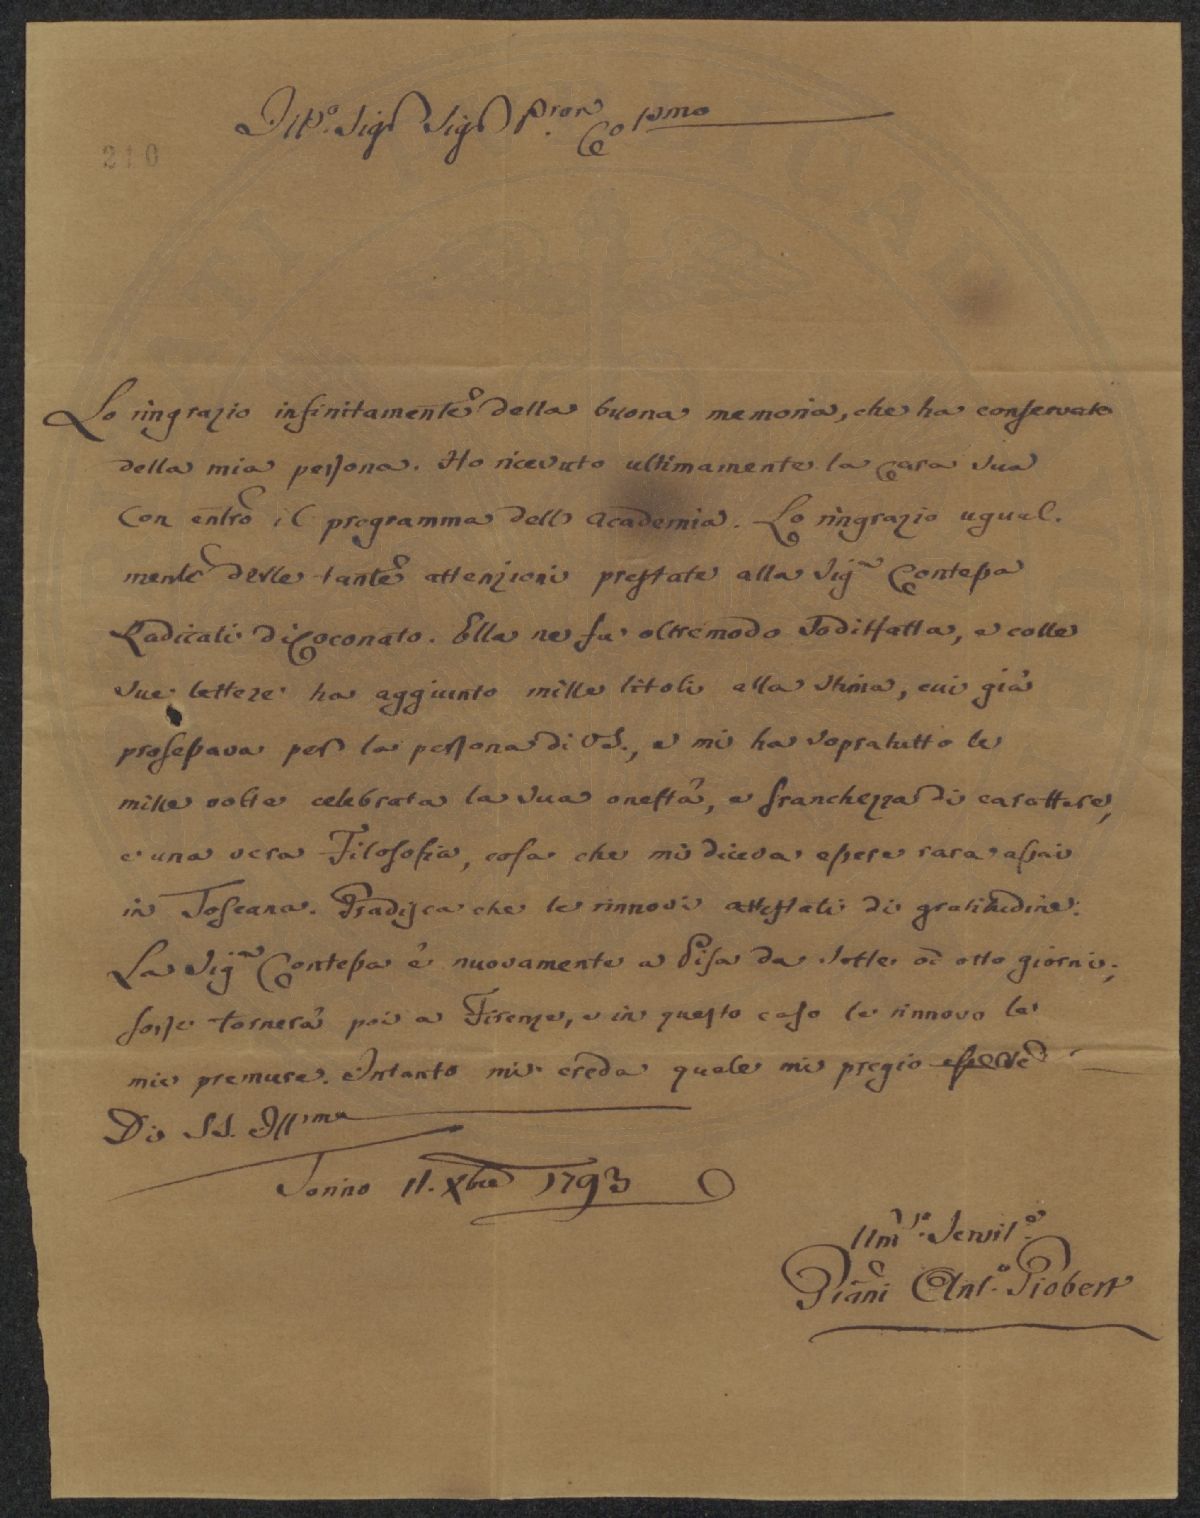 Ill.o Sig.r Sig.r P.ron Co.smo
210
Lo ringrazio infinitamente della buona memoria, che ha conservato
della mia persona. Ho ricevuto ultimamente la cara sua
con entro il programma dell Academia. Lo ringrazio ugual.
mente delle tante attenzioni prestate alla Sig.a Contessa
Radicati di Coconato. Ella ne fu oltremodo sodisfatta, e colle
sue lettere ha aggiunto mille titoli alla stima, cui già
professava per la persona di VS., e mi ha sopratutto le
mille volte celebrata la sua onestà, e franchezza di carattere,
e una vera Filosofia, cosa che mi diceva essere rara assai
in Toscana. Gradisca che le rinnovi attestati di gratitudine.
La Sig.a Contessa è nuovamente a Pisa da sette od otto giorni;
forse tornerà poi a Firenze, e in questo caso le rinnovo le
mie premure. Intanto mi creda quale mi pregio essere
Di SS. Ill.ma
Torino 11. Xbre 1793
Um.o Servit.e
Giani Ant.o Giobert